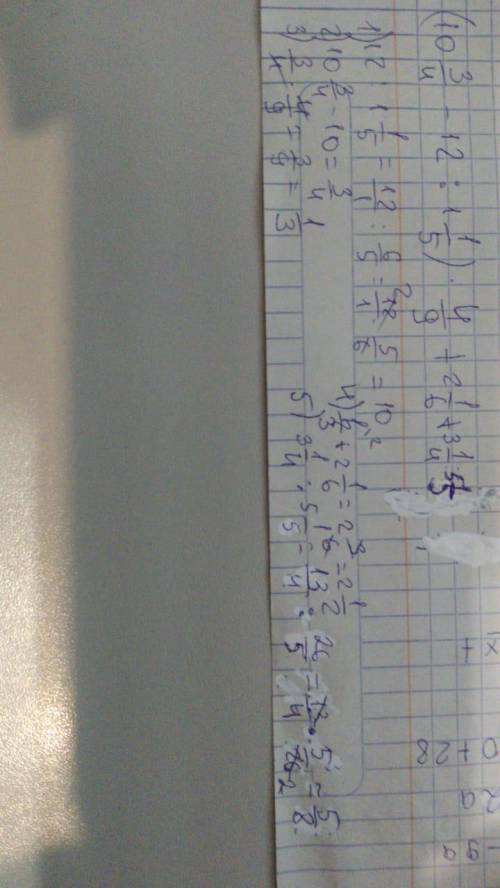 (10 3/4 - 12 : 1 1/5) · 4/9 + 2 1/6 + 3 1/4
1) 12 : 1 1/5 = 12/1 : 6/5 = 12/1 · 5/6 = 10
2) 10 3/4 - 10 = 3/4
3) 3/4 · 4/9 = 3/9 = 1/3
4) 1/3 + 2 1/6 = 2 3/6 = 2 1/2
5) 3 1/4 : 5 1/5 = 13/4 : 26/5 = 13/4 · 5/26 = 5/8
0 + 28
2a
- 9a